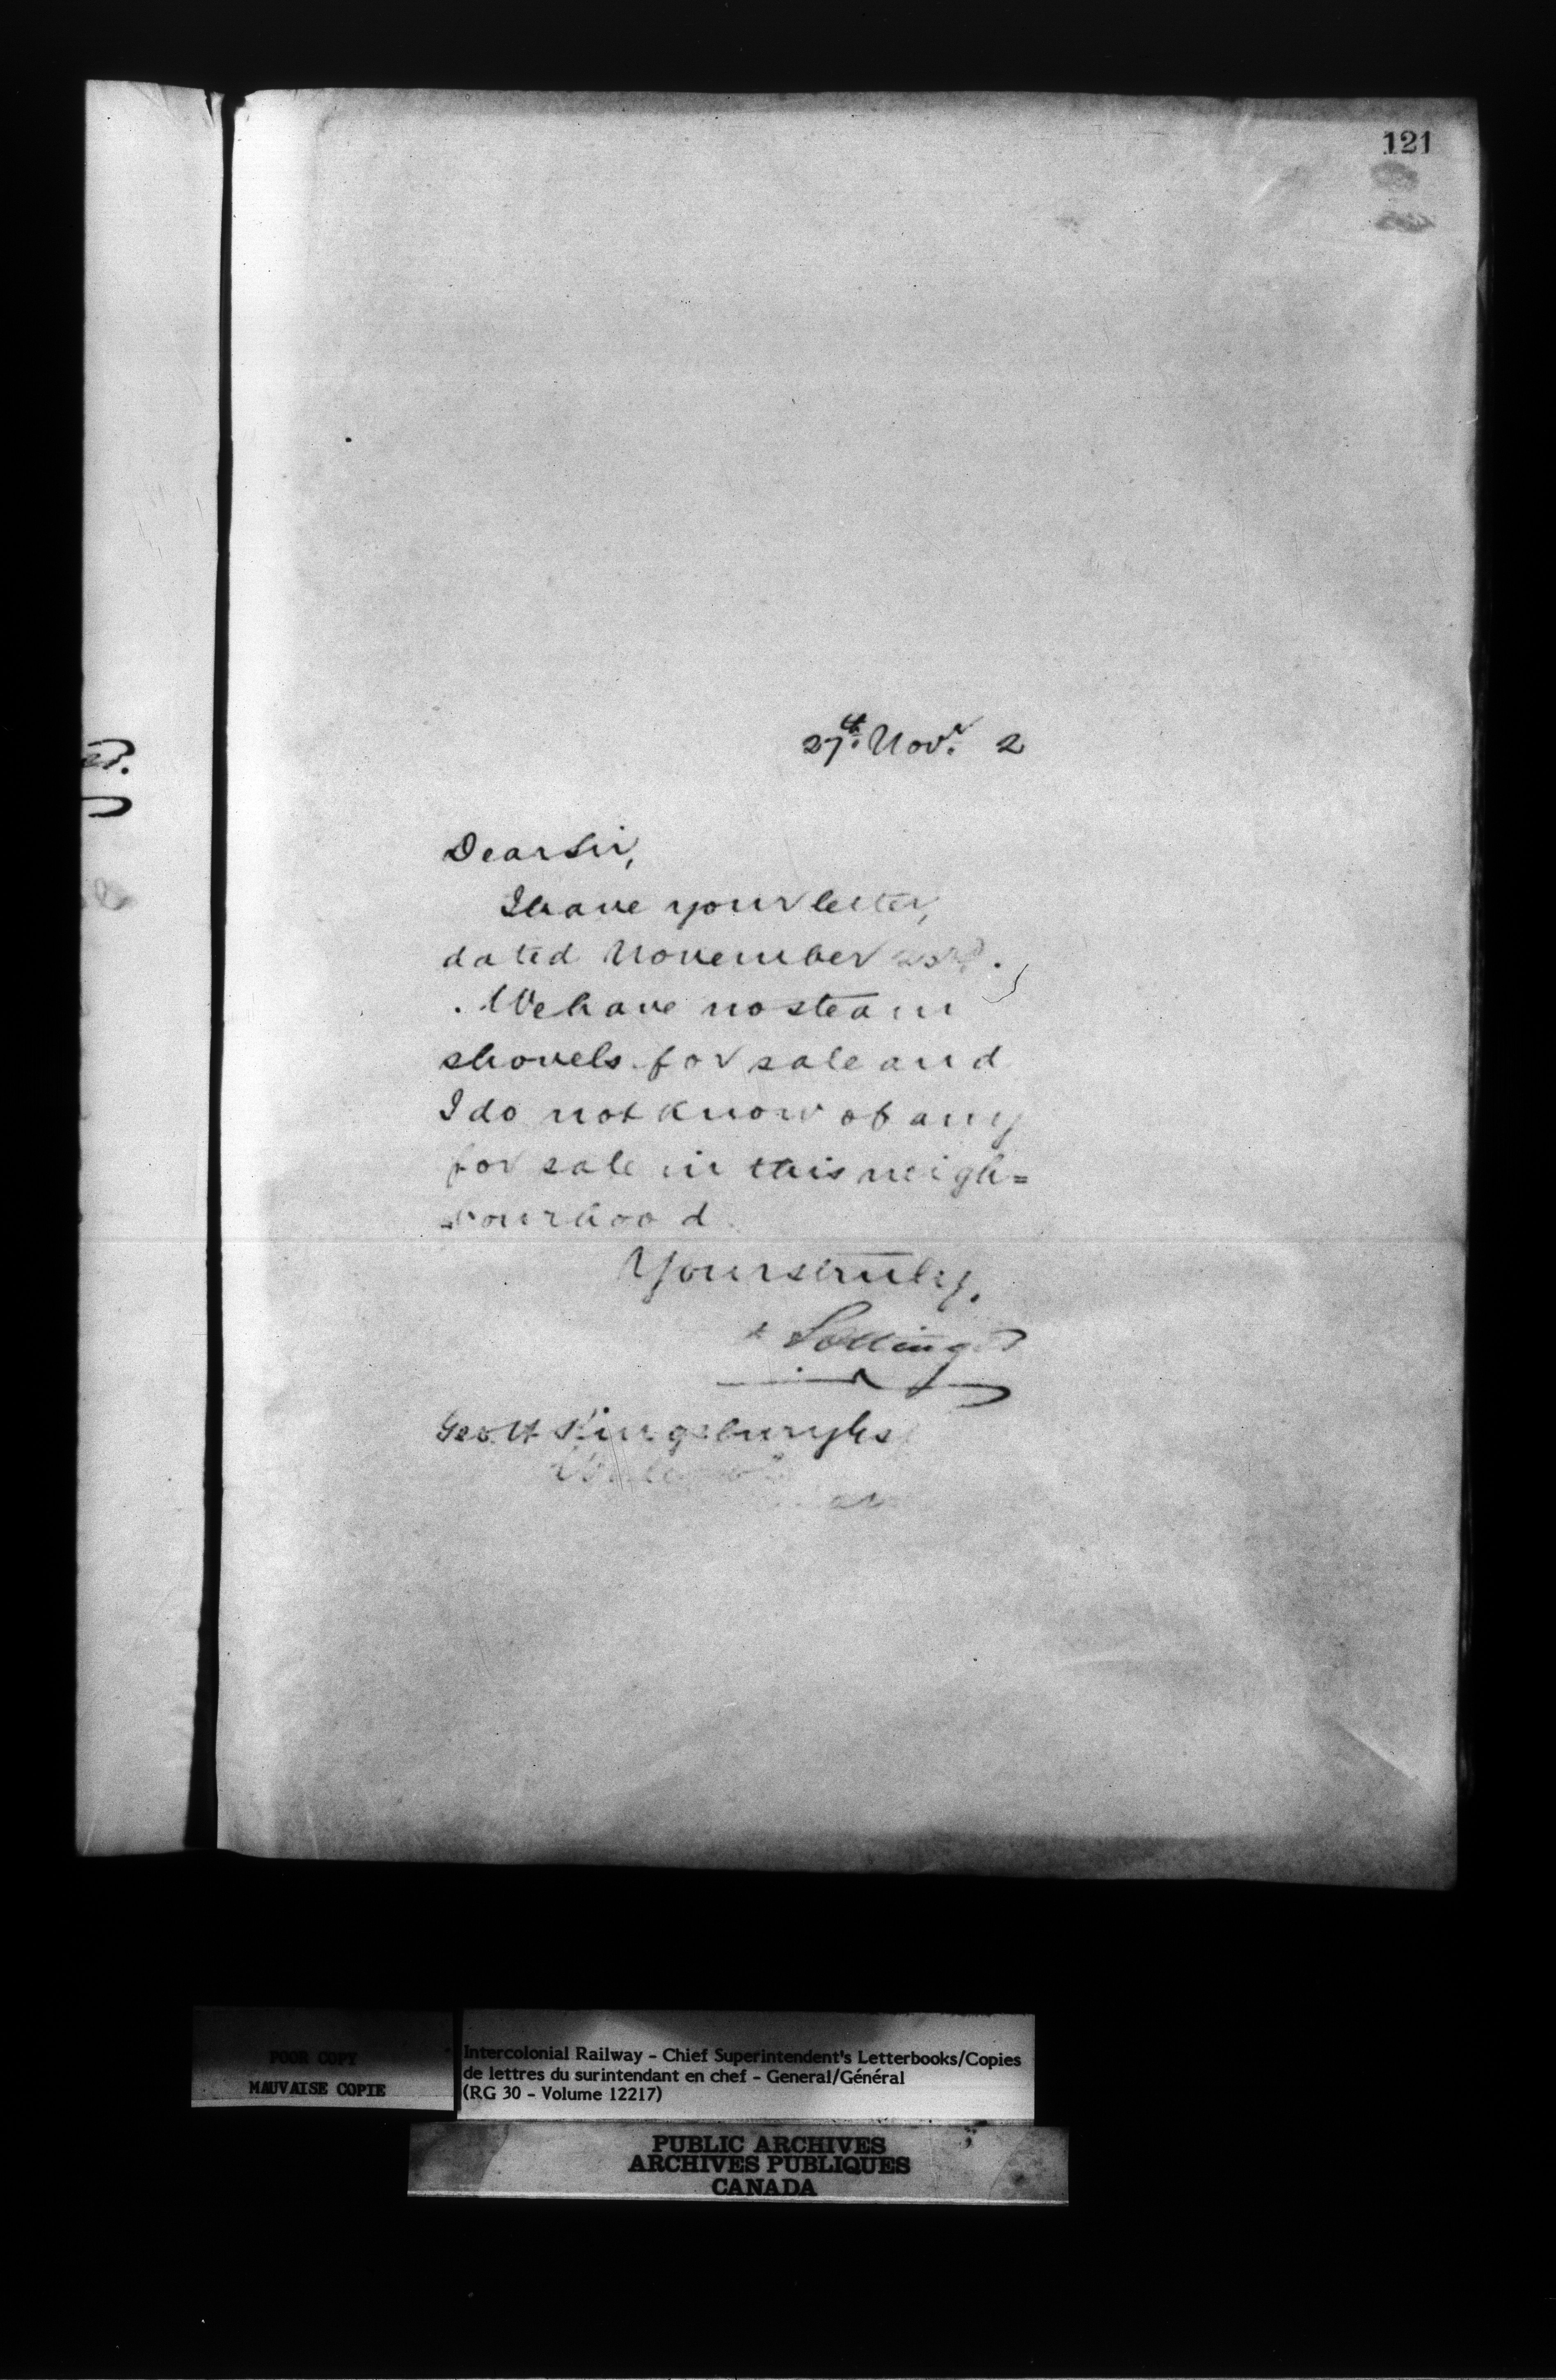 121
27th. Novr. 2
Dear Sir,
I have your letter,
dated November 23rd.
We have no steam
shovels for sale and
I do not know of any
for sale in this neigh=
bourhood
Yours truly.
Pottinger
Geo. H Kingsbury
POOR COPY
MAUVAISE COPIE
Intercolonial Railway - Chief Superintendent's Letterbooks/Copies
de lettres du surintendant en chef - General/Général
(RG 30 - Volume 12217)
PUBLIC ARCHIVES
ARCHIVES PUBLIQUES
CANADA